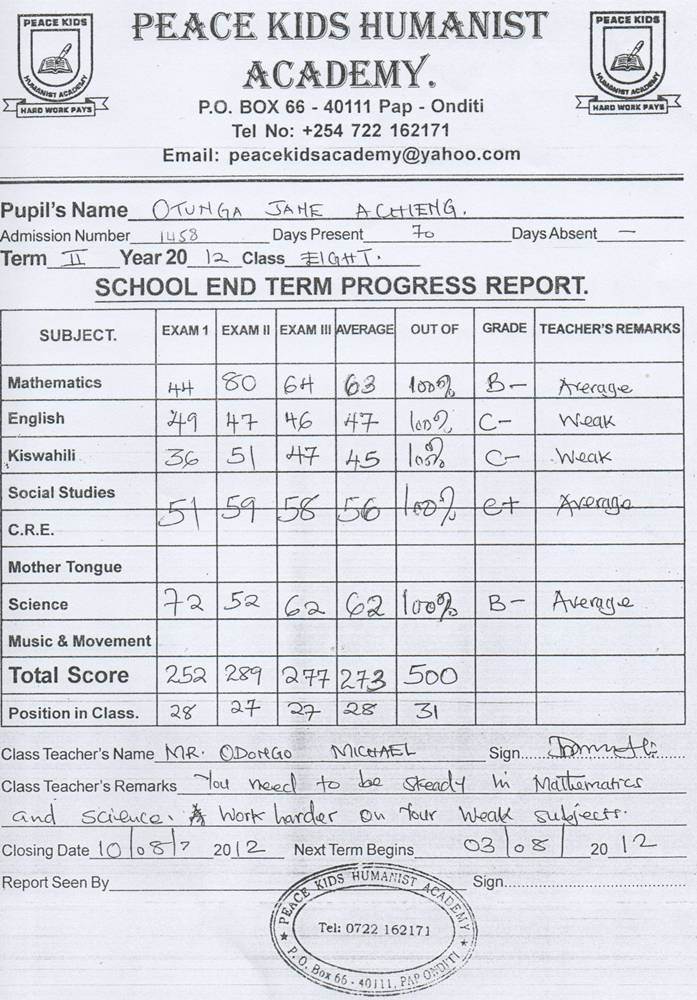 PEACE KIDS
HUMANIST ACADEMY
HARD WORK PAYS
PEACE KIDS HUMANIST
ACADEMY.
PEACE KIDS
HUMANIST ACADEMY
HARD WORK PAYS
P.O. BOX 66 - 40111 Pap - Onditi
Tel No: +254 722 162171
Email: peacekidsacademy@yahoo.com
Pupil's Name OTUNGA JANE ACHIENG.
Admission Number 1458 Days Present 70 Days Absent —
Term II Year 20 12 Class EIGHT.
SCHOOL END TERM PROGRESS REPORT.
SUBJECT. EXAM 1 EXAM II EXAM III AVERAGE OUT OF GRADE TEACHER'S REMARKS
Mathematics 44 80 64 63 100% B- Average
English 49 47 46 47 100% C- Weak
Kiswahili 36 51 47 45 100% C- Weak
Social Studies 51 59 58 56 100% C+ Average
C.R.E.
Mother Tongue
Science 72 52 62 62 100% B- Average
Music & Movement
Total Score 252 289 277 273 500
Position in Class. 28 27 27 28 31
Class Teacher's Name MR. ODONGO MICHAEL Sign..........
Class Teacher's Remarks You need to be steady in Mathematics
and science. Work harder on Your Weak subjects.
Closing Date 10/08/ 2012 Next Term Begins 03/08/ 20 12
Report Seen By Sign..........
PEACE KIDS HUMANIST ACADEMY
Tel: 0722 162171
P.O. Box 66 - 40111, PAP ONDITI